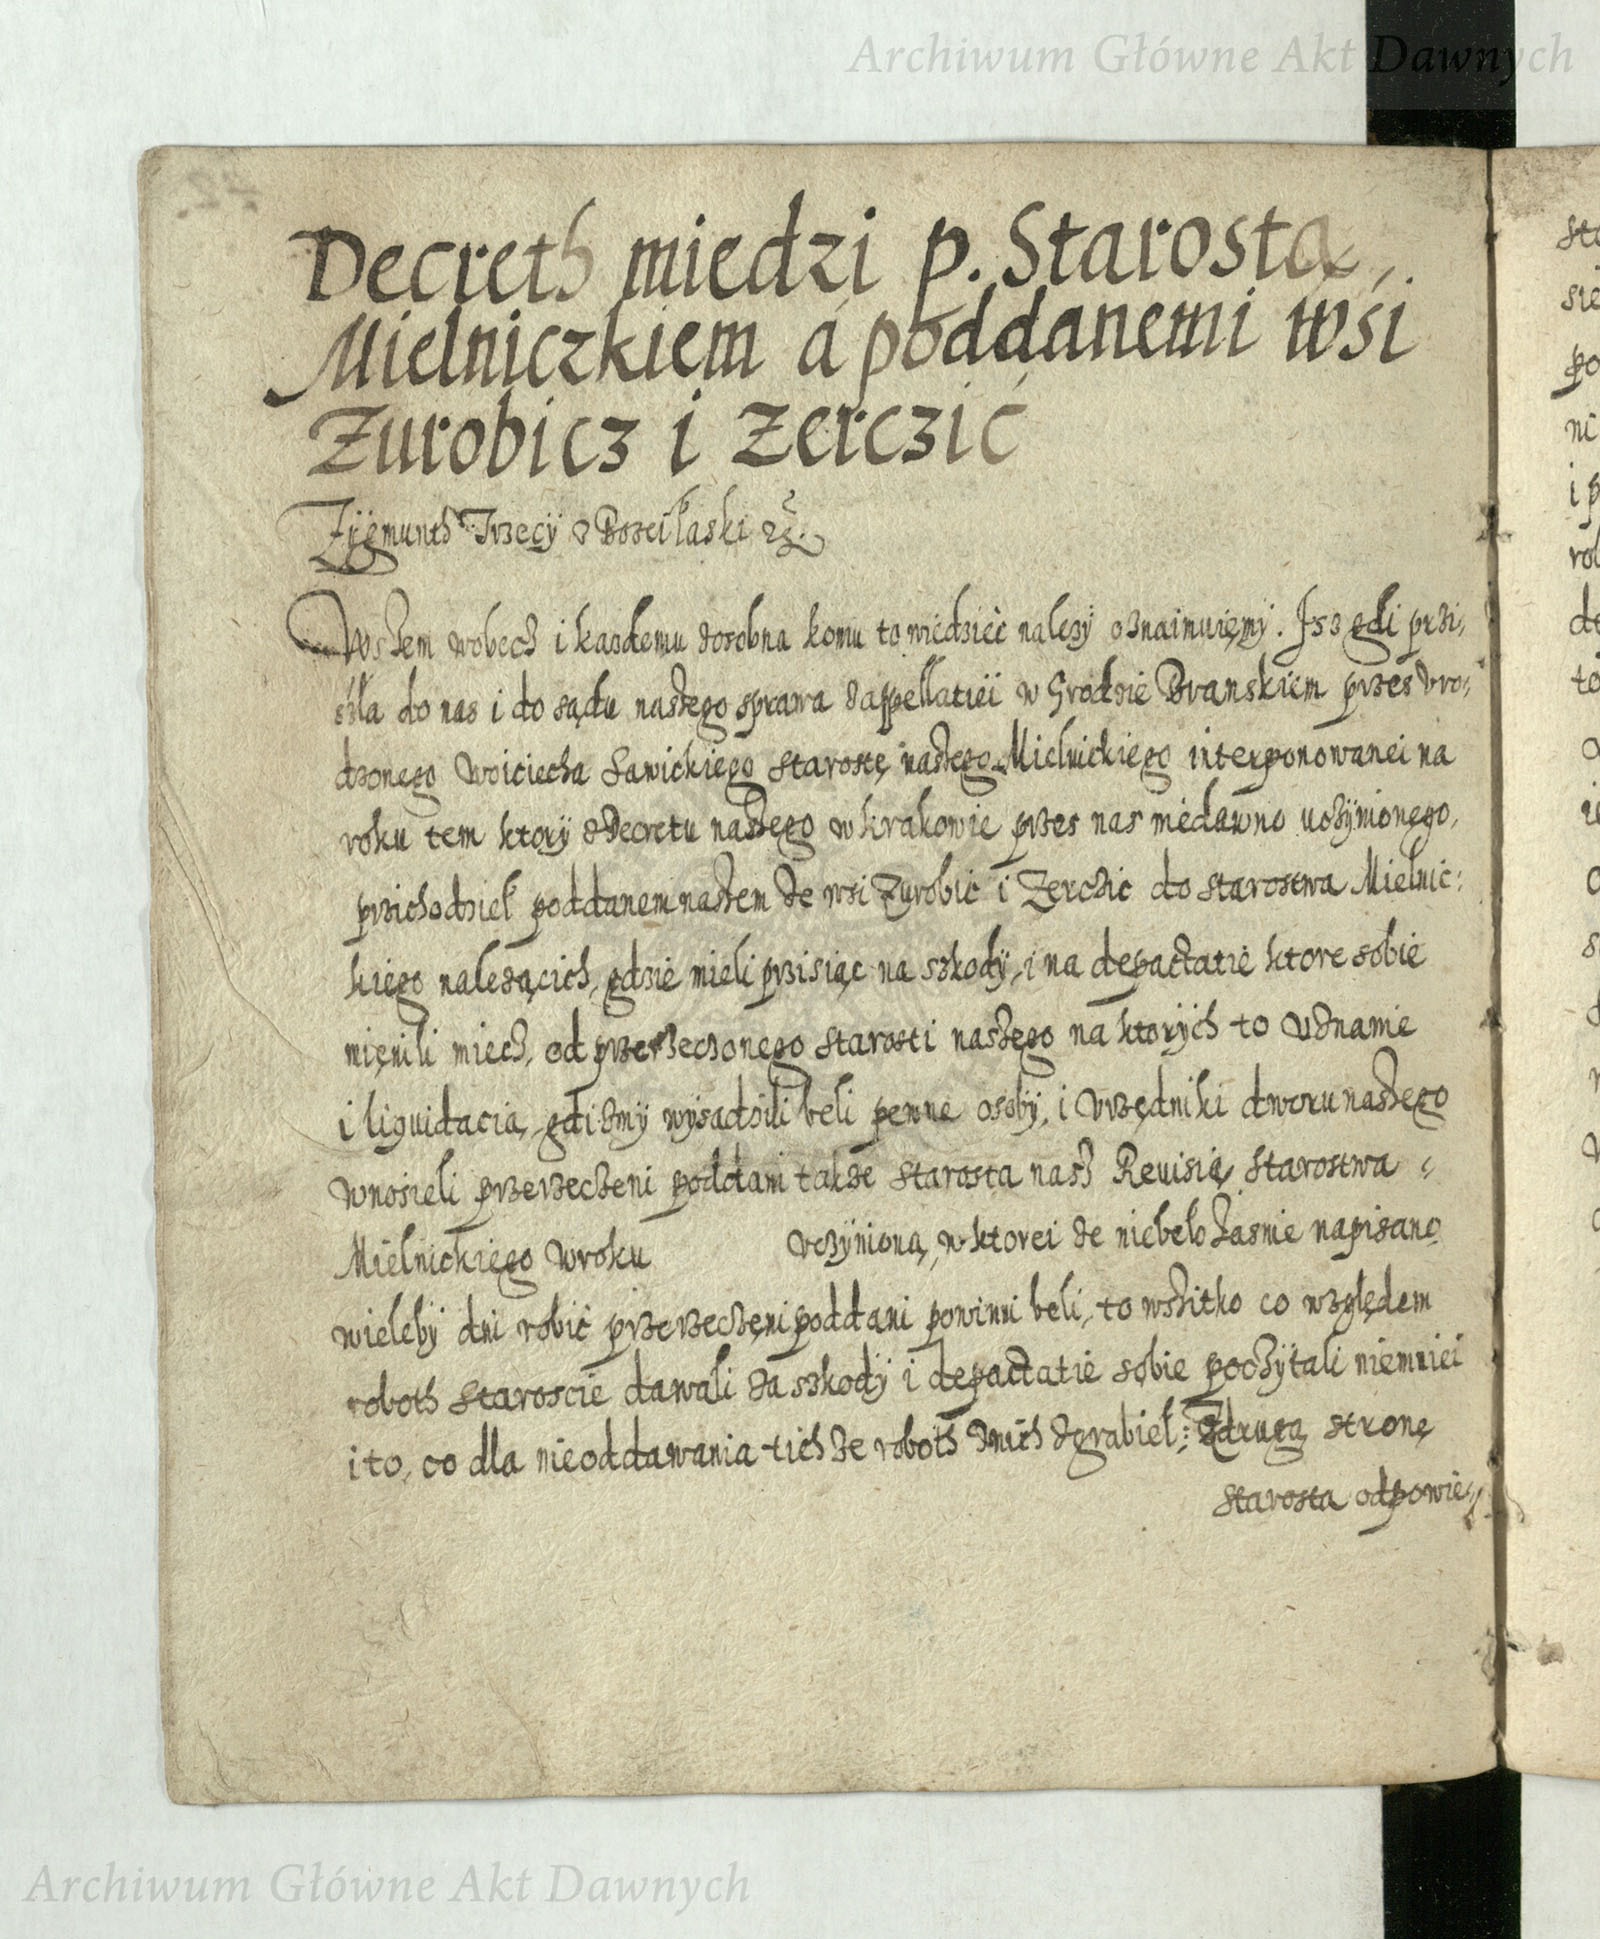 Archiwum Główne Akt Dawnych
Decreth miedzi p. Starostą
Mielniczkiem a poddanemi wsi
Zurobicz i Zerczić
Zÿgmunth Trzecÿ z Bozei łaski etc.
Wszem wobech i kazdemu zosobna komu to wiedzieć nalezÿ oznaimuięmÿ. Isz gdi przi,
szła do nas i do sądu naszego sprawa zappellatieï w Grodzie Branskiem przes uro,
dzonego Woiciecha Sawickiego Starostę naszego Mielnickiego interponowanei na
roku tem ktorÿ zDecretu naszego w Krakowie przes nas niedawno uczÿnionego,
przichodzieł poddanem naszem ze wsi Zurobic i Zerczic do starostwa Mielnic:
kiego nalezącich, gdzie mieli przisiąc na szkodÿ, i na depactatie ktore sobie
mięnili miech, od przerzeczonego starosti naszego na ktorÿch to uznanie
i liquidacią, gdizmÿ wÿsadzili beli pewne osobÿ, i urzędniki dworu naszego
wnosieli przerzeczeni poddani takze starosta nasz Reuisią starostwa
Mielnickiego wroku uczÿnioną, w ktorei ze niebeło iasnie napisano
wielebÿ dni robić przerzeczęni poddani powinni beli, to wszitko co względem
roboth staroscie dawali za szkodÿ i depactatie sobie poczÿtali niemniei
i to, co dla nieoddawania tich ze roboth znich zgrabieł; Zdrugą stronę
starosta odpowie,
Archiwum Główne Akt Dawnych